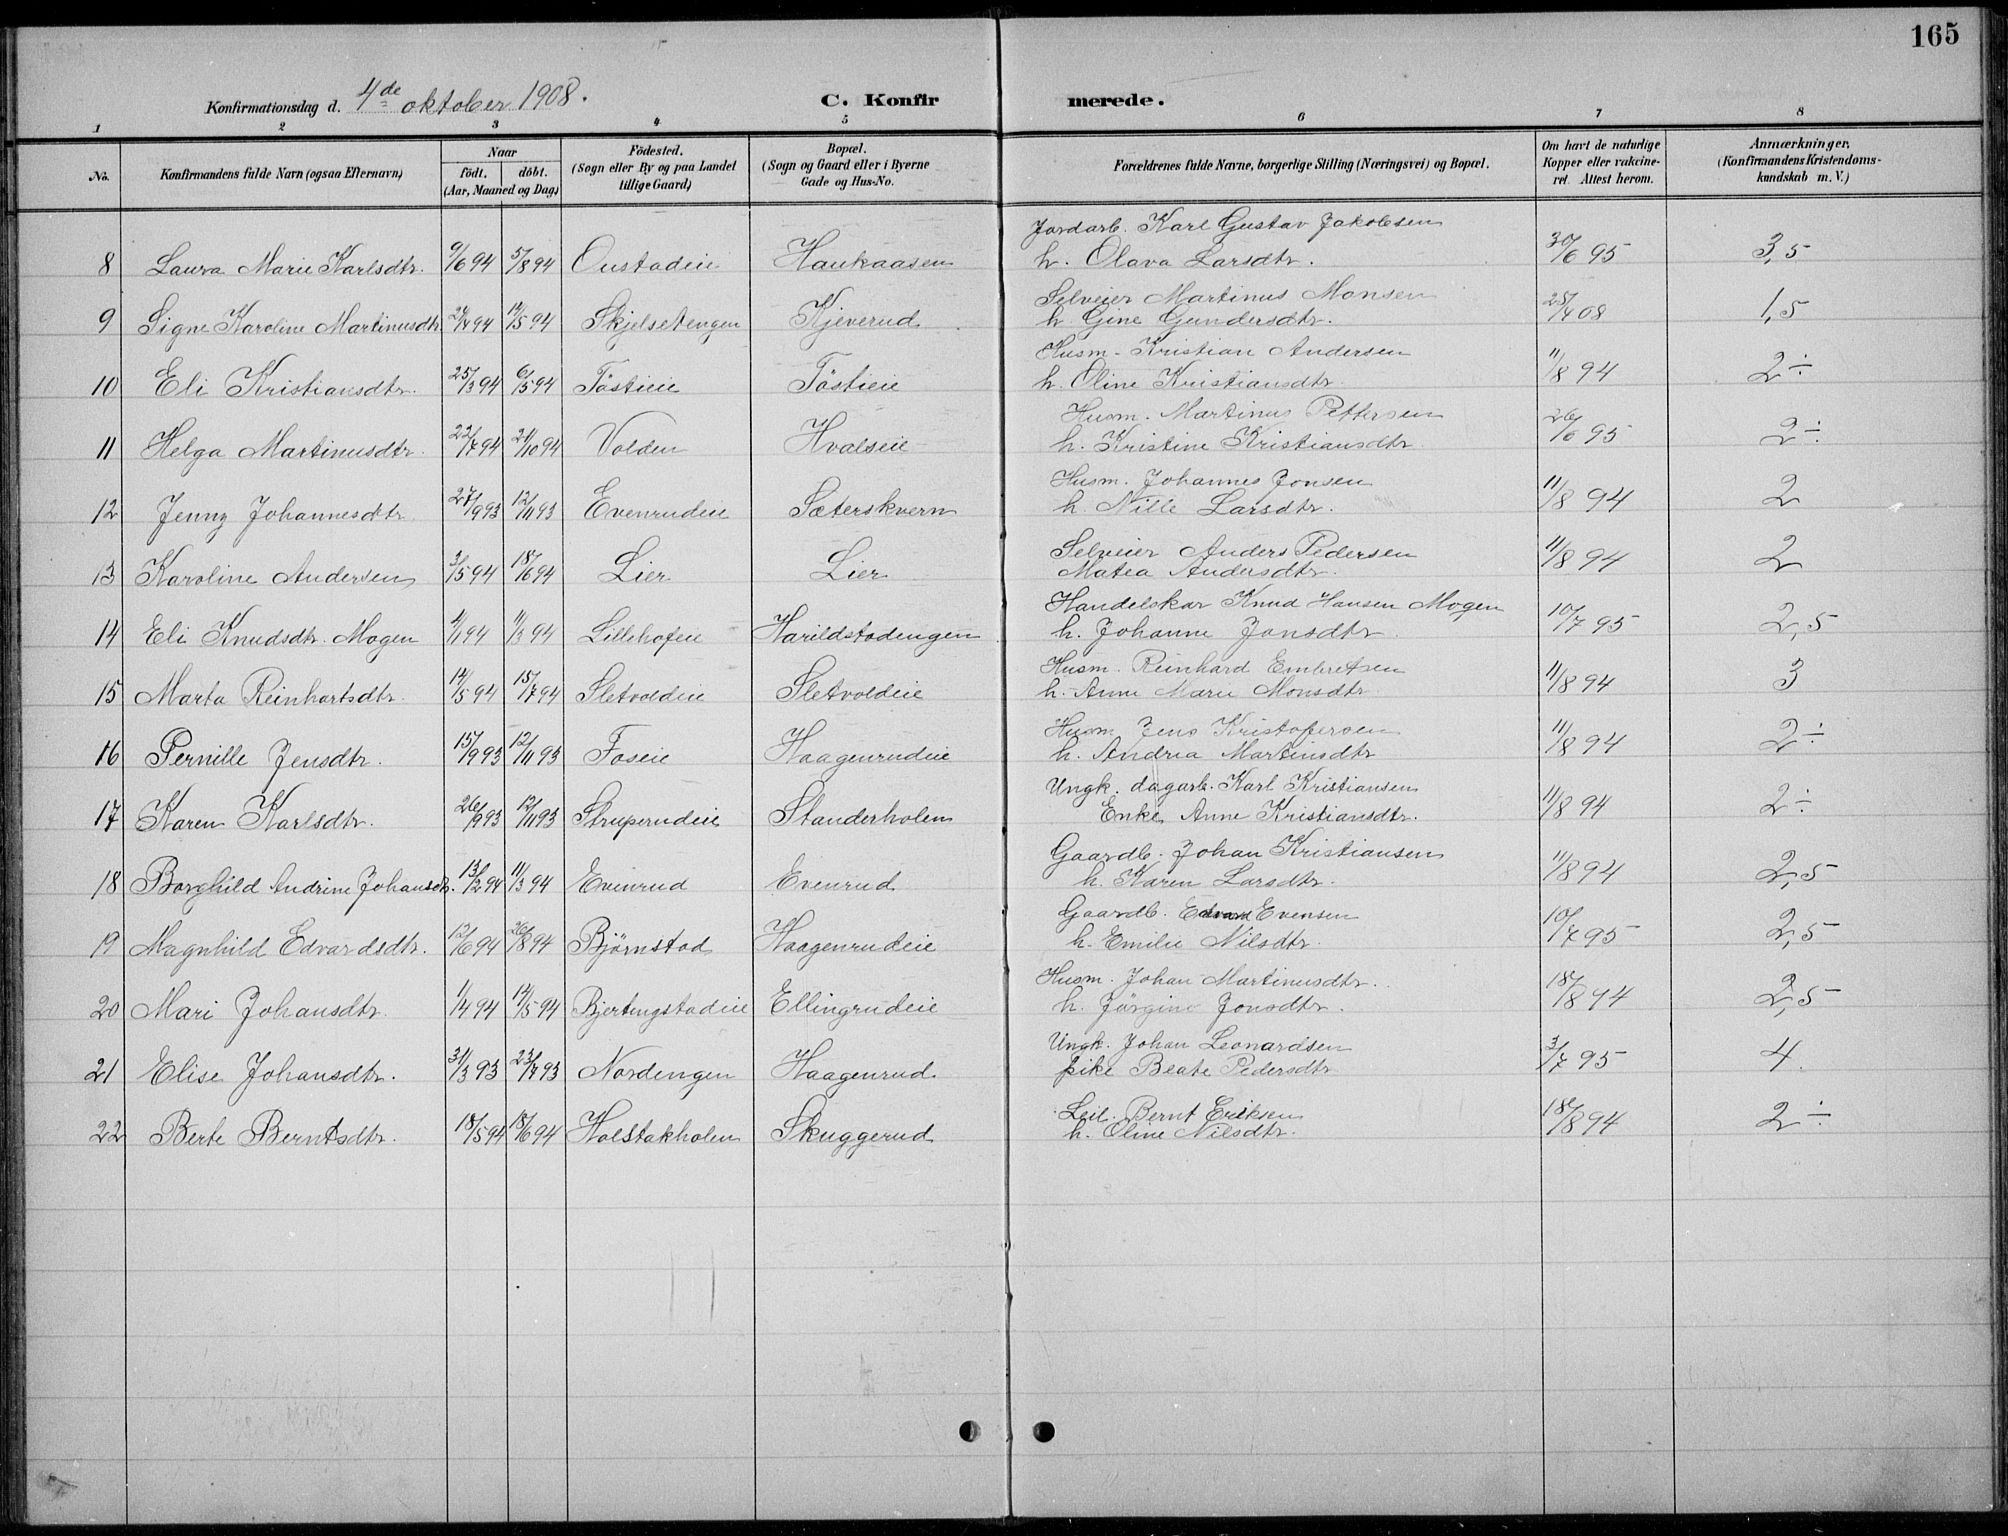 165
Konfirmationsdag d. 4de oktober 1908.
C. Konfir merede.
1 2 3 4 5 6 7 8
No.
Konfirmandens fulde Navn (ogsaa Efternavn)
Naar
födt. döbt.
(Aar, Maaned og Dag)
Födested.
(Sogn eller By og paa Landet
tillige Gaard)
Bopæl.
(Sogn og Gaard eller i Byerne
Gade og Hus-No.
Forældrenes fulde Navne, borgerlige Stilling (Næringsvei) og Bopæl.
Om havt de naturlige
Kopper eller vakcine-
ret. Attest herom.
Anmærkninger.
(Konfirmandens Kristendoms-
kundskab m. V.)
Jordarb. Karl Gustav Jakobsen
8 Laura Marie Karlsdtr. 9/6 94 5/8 94 Oustadeie Haukaasen h. Olava Larsdtr. 30/6 95 3,5
Selveier Martinus Monsen
9 Signe Karoline Martinusdtr 14/5 94 Skjelsetengen Kjeverud h. Gine Gundersdtr. 25/4 08 1,5
Husm. Kristian Andersen
10 Eli Kristiansdtr. 25/3 94 6/5 94 Töstieie Töstieie h. Oline Kristiansdtr 11/8 94 2÷
Husm. Martinus Pettersen
11 Helga Martinusdtr. 22/7 94 21/10 94 Volden Hvalseie h. Kristine Kristiansdtr 26/6 95 2÷
Husm. Johannes Jonsen
12 Jenny Johannesdtr. 27/9 93 12/11 93 Evenrudeie Sæterskvern h. Nille Larsdtr. 11/8 94 2
Selveier Anders Pedersen
13 Karoline Andersen 3/5 94 18/6 94 Lier Lier Matea Andersdtr. 11/8 94 2
Handelskar Knud Hansen Mogen
14 Eli Knudsdtr. Mogen 4/1 94 11/3 94 Lillehofeie Harildstadengen h. Johanne Jonsdtr. 10/7 95 2,5
Husm. Reinhard Embretsen
15 Marta Reinhartsdtr. 14/5 94 15/7 94 Sletvoldeie Sletvoldeie h. Anne Marie Monsdtr 11/8 94 3
Husm. Jens Kristofersen
16 Pernille Jensdtr. 15/9 93 12/11 93 Foseie Haagenrudeie h. Andrea Martinsdtr 11/8 94 2÷
Ungk. dagarb. Karl Kristiansen
17 Karen Karlsdtr. 26/9 93 12/11 93 Struperudeie Standerholen Enke Anne Kristiansdtr. 11/8 94 2÷
Gaardb. Johan Kristiansen
18 Borghild Andrine Johansdtr. 13/2 94 11/3 94 Evenrud Evenrud h. Karen Larsdtr. 11/8 94 2,5
Gaardb. Edvard Evensen
19 Magnhild Edvardsdtr. 12/6 94 26/8 94 Bjørnstad Haagenrudeie h. Emilie Nilsdtr. 10/7 95 2,5
Husm. Johan Martinusdtr.
20 Mari Johansdtr. 1/4 94 14/5 94 Bjertingstadeie Ellingrudeie h. Jörgine Jonsdtr. 18/8 94 2,5
Ungk. Johan Leonardsen
21 Elise Johansdtr. 31/3 93 23/7 93 Nordengen Haagenrud pike Beate Pedersdtr 3/7 95 4.
Leil. Bernt Eriksen
22 Berte Berntsdtr. 18/5 94 18/6 94 Holstakholen Skuggerud h. Oline Nilsdtr. 18/8 94 2÷